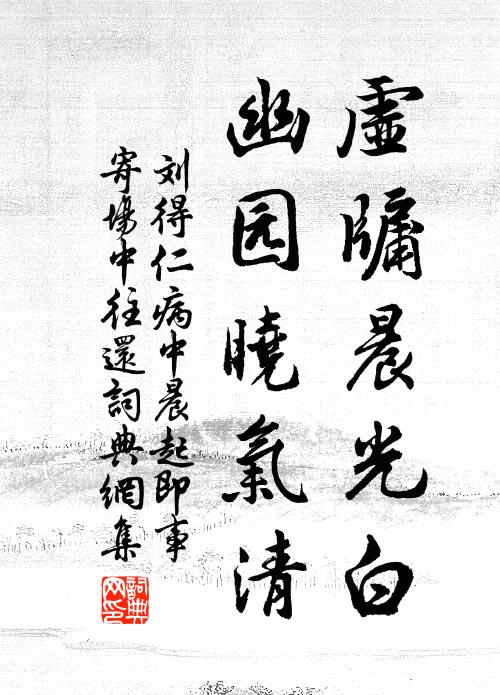 虛牖晨光白
幽园曉氣清
刘得仁病中晨起即事
寄場中往還詞典網集
詞典网印